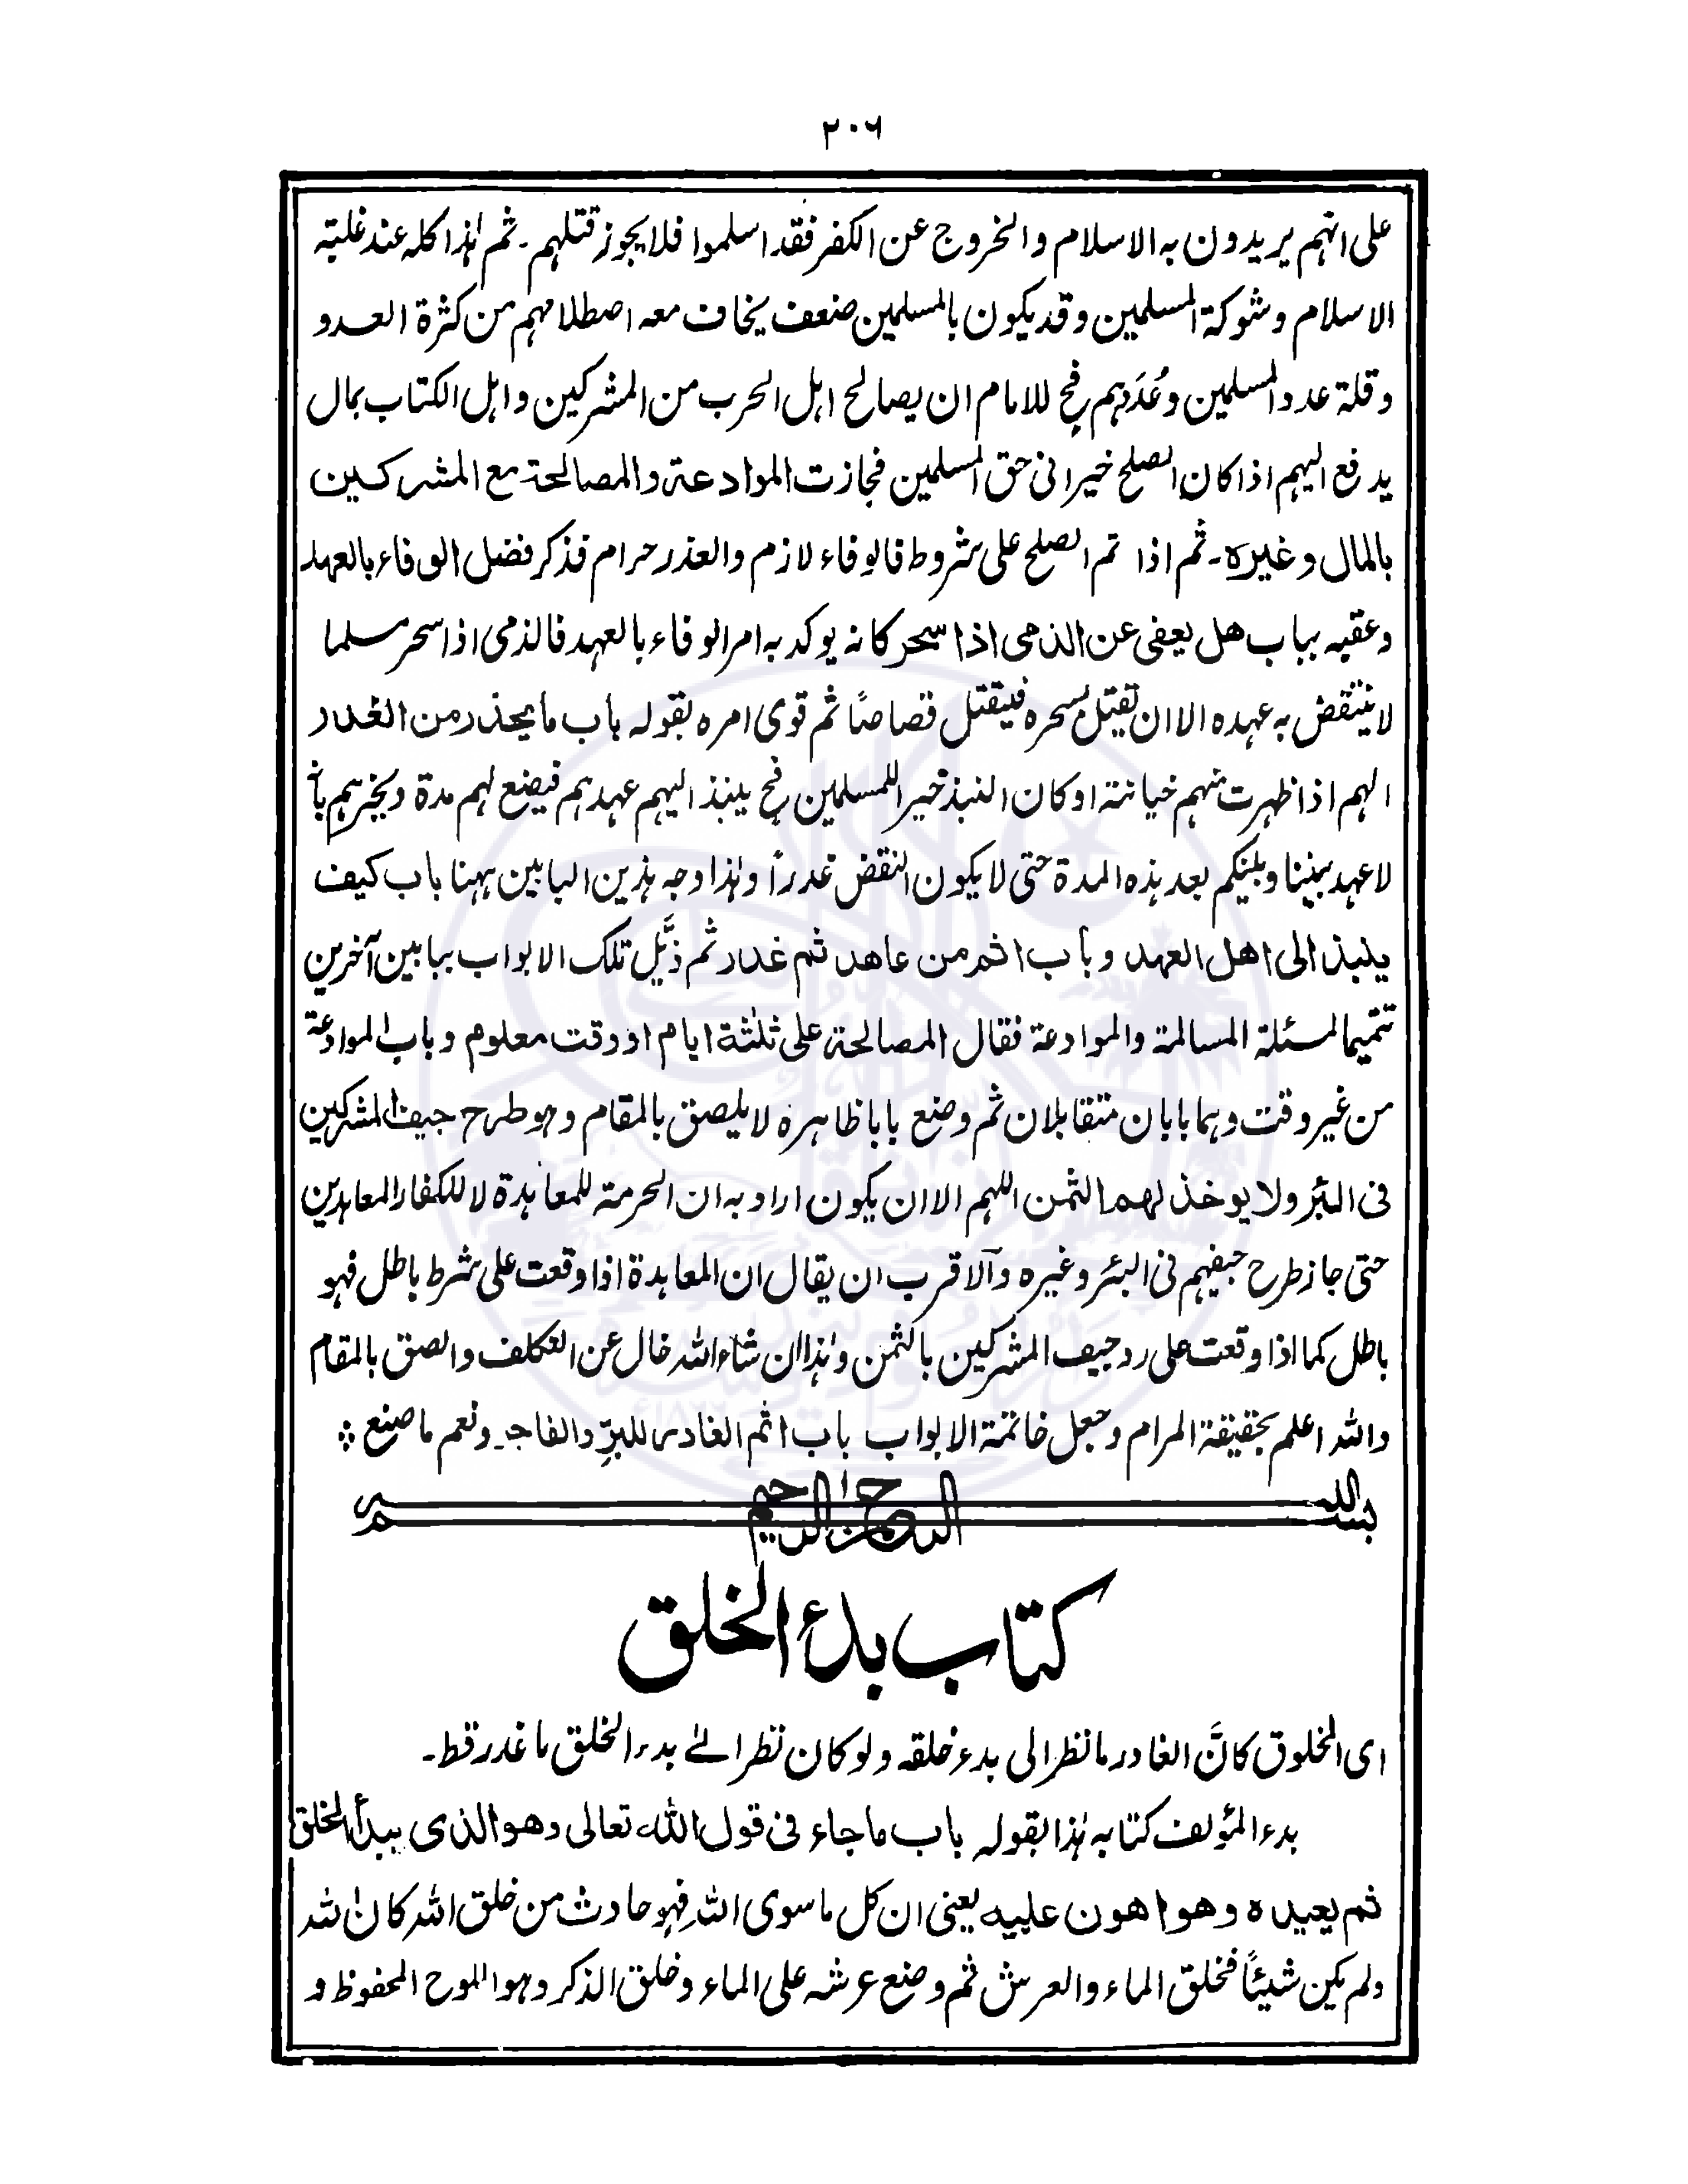 ٢٠٦
على انهم يريدون به الاسلام والخروج عن الكفر فقد اسلموا فلا يجوز قتلهم۔ ثم هٰذا كله عند غلبته
الاسلام وشوكة المسلمين وقد يكون بالمسلمين ضعف يخاف معه اصطلامهم من كثرة العدو
وقلة عدد المسلمين وعُدَدهم فح للامام ان يصالح اهل الحرب من المشركين واهل الكتاب بمال
يدفع اليهم اذا كان الصلح خيرا فى حق المسلمين فجازت الموادعة والمصالحة مع المشركين
بالمال وغيره۔ ثم اذا تم الصلح على شروط فالوفاء لازم والغدر حرام فذكر فضل الوفاء بالعهد
وعقبه بباب هل يعفى عن الذمى اذا سحر كانه يوكد به امر الوفاء بالعهد فالذمى اذا سحر مسلما
لا ينتقض به عهده الا ان يقتل بسحره فيقتل قصاصًا ثم قوى امره بقوله باب ما يحذر من الغدر
الهم اذا ظهرت منهم خيانته او كان النبذ خيرا للمسلمين فح ينبذ اليهم عهدهم فيضع لهم مدة ويخبرهم بأن
لا عهد بيننا وبينكم بعد هذه المدة حتى لا يكون النقض غدرًا وهٰذا وجه هذين البابين ههنا باب كيف
ينبذ الى اهل العهد وباب اثم من عاهد ثم غدر ثم ذَيَّل تلك الابواب ببابين آخرين
تتميما لمسئلة المسالمة والموادعة فقال المصالحة على ثلثة ايام او وقت معلوم وباب الموادعة
من غير وقت وهما بابان متقابلان ثم وضع بابا ظاهره لا يلصق بالمقام وهو طرح جيف المشركين
فى البئر ولا يوخذ لهم الثمن اللهم الا ان يكون اراد به ان الحرمة للمعاهدة لا للكفار المعاهدين
حتى جاز طرح جيفهم فى البئر وغيره وآلاقرب ان يقال ان المعاهدة اذا وقعت على شرط باطل فهو
باطل كما اذا وقعت على رد جيف المشركين بالثمن وهٰذا ان شاء الله خال عن التكلف والصق بالمقام
والله اعلم بحقيقة المرام وجعل خاتمة الابواب باب اثم الغادر للبرِّ والفاجر ونعم ما صنع ⁘
بسم الله الرحمٰن الرحيم
كتاب بدء الخلق
اى المخلوق كانَّ الغادر ما نظر الى بدء خلقه ولو كان نظر الىٰ بدء الخلق ما غدر قط۔
بدء المؤلف كتابه هٰذا بقوله باب ما جاء فى قول الله تعالى وهو الذى يبدأ الخلق
ثم يعيده وهو اهون عليه يعنى ان كل ما سوى اللهِ فهو حادث من خلق الله كان الله
ولم يكن شيئًا فخلق الماء والعرش ثم وضع عرشه على الماء وخلق الذكر وهو اللوح المحفوظ و